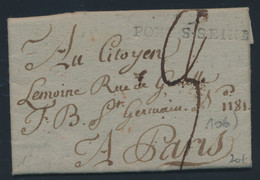 PON S-SEINE
Au Citoyen
Lemoine Rue de
F. B. St Germain 1181.
(106)
A Paris